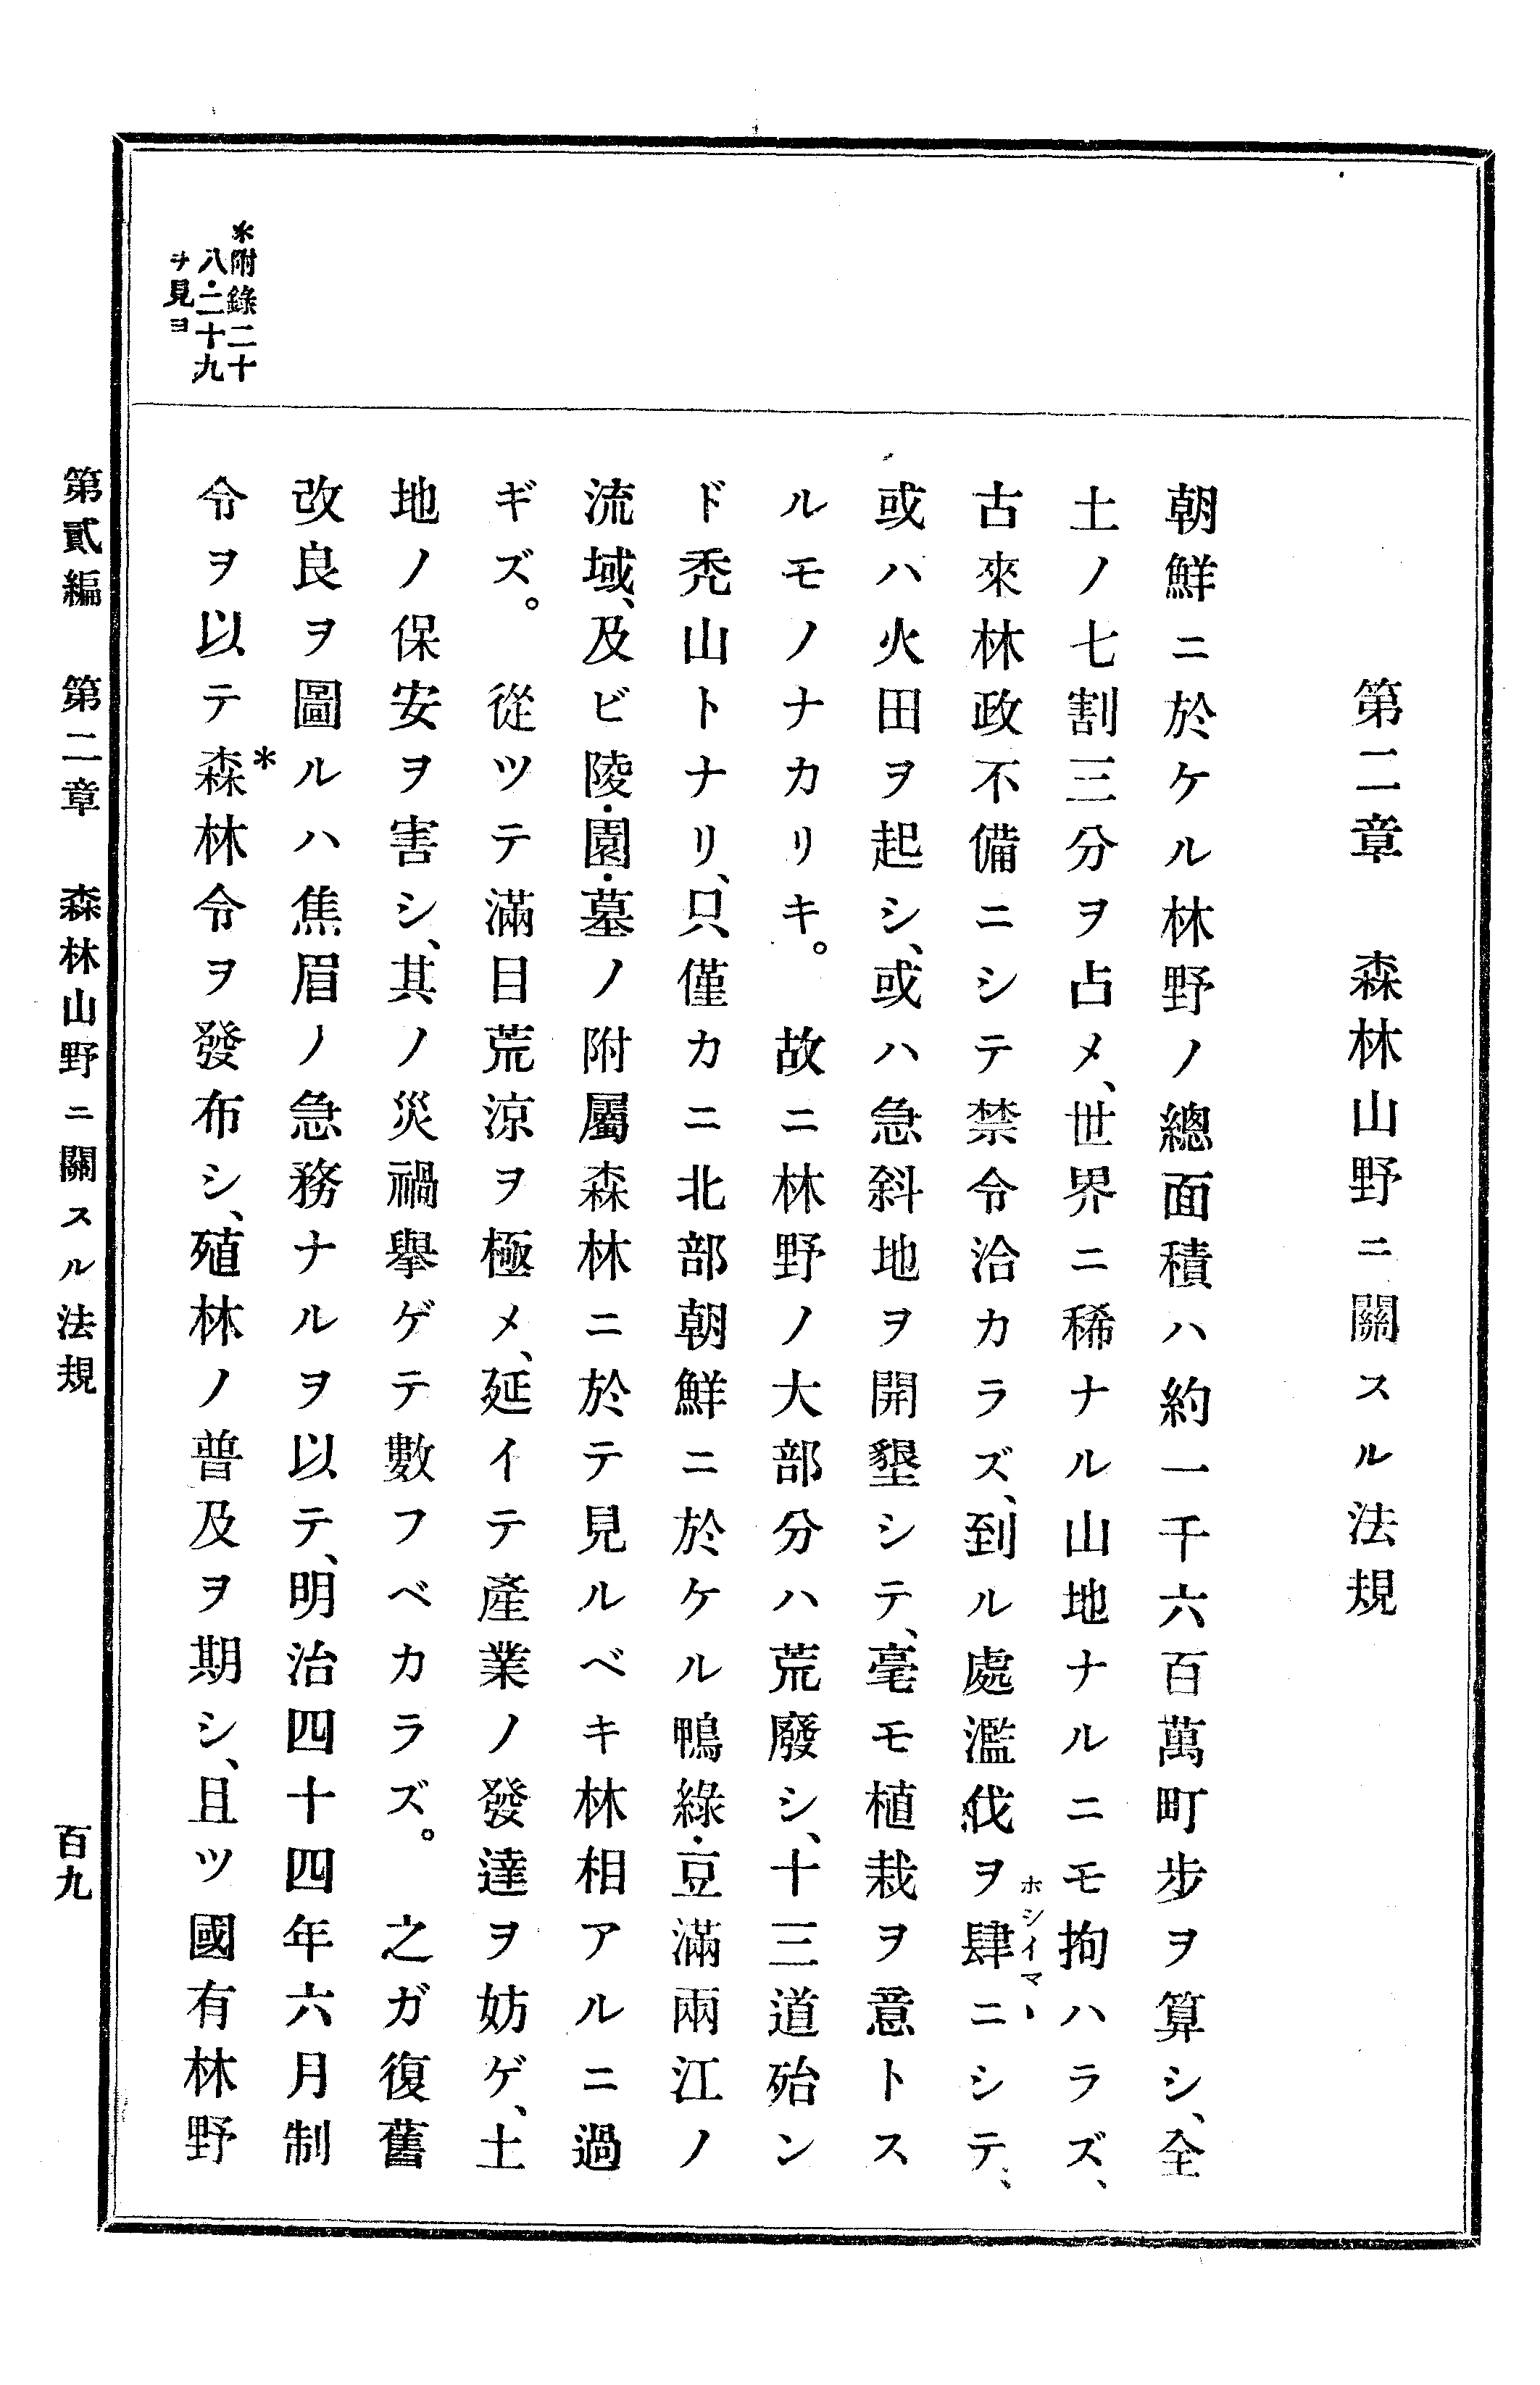 第二章　森林山野ニ關スル法規
朝鮮ニ於ケル林野ノ總面積ハ約一千六百萬町步ヲ算シ、全
土ノ七割三分ヲ占メ、世界ニ稀ナル山地ナルニモ拘ハラズ、
古來林政不備ニシテ禁令洽カラズ、到ル處濫伐ヲ肆ニシテ、
ホシイマヽ
或ハ火田ヲ起シ、或ハ急斜地ヲ開墾シテ、毫モ植栽ヲ意トス
ルモノナカリキ。　故ニ林野ノ大部分ハ荒廢シ、十三道殆ン
ド禿山トナリ、只僅カニ北部朝鮮ニ於ケル鴨綠・豆滿兩江ノ
流域、及ビ陵・園・墓ノ附屬森林ニ於テ見ルベキ林相アルニ過
ギズ。　從ツテ滿目荒涼ヲ極メ、延イテ產業ノ發達ヲ妨ゲ、土
地ノ保安ヲ害シ、其ノ災禍擧ゲテ數フベカラズ。　之ガ復舊
改良ヲ圖ルハ焦眉ノ急務ナルヲ以テ、明治四十四年六月制
令ヲ以テ森*林令ヲ發布シ、殖林ノ普及ヲ期シ、且ツ國有林野
*附錄二十
八・二十九
ヲ見ヨ
第貳編　第二章　森林山野ニ關スル法規　百九